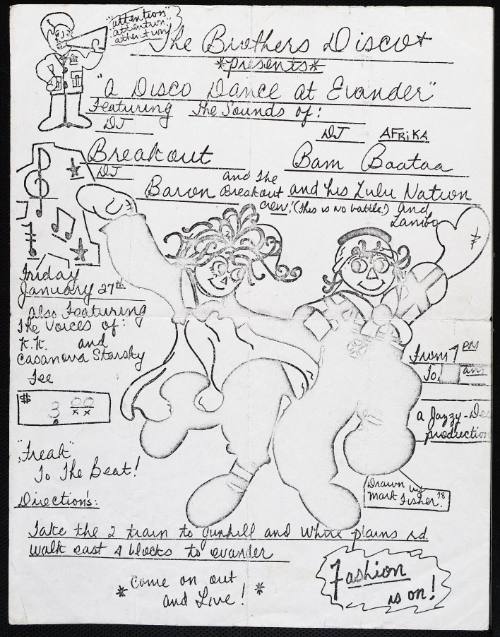 "attention"
attention!
attention!
The Brothers Disco*
*presents*
"a Disco Dance at Evander"
Featuring The Sounds of:
DJ
Breakout
DJ AFRIKA
Bam Baataa
DJ
Baron and the Breakout crew! and his Zulu Nation
(This is no battle!) and
Friday
January 27th
also Featuring
The Voices of:
K.K. and
Casanova Starsky
Tee
$ 3.00
xx
From 7 PM
To 1 am
a Jazzy-Dee
production
"Freak"
To The Beat!
Drawn by
Mark Fisher. 78
Direction's:
Take the 2 train to gunhill and white plains rd
walk east 4 blocks to evander
*come on out
and Live! *
Fashion
is on!